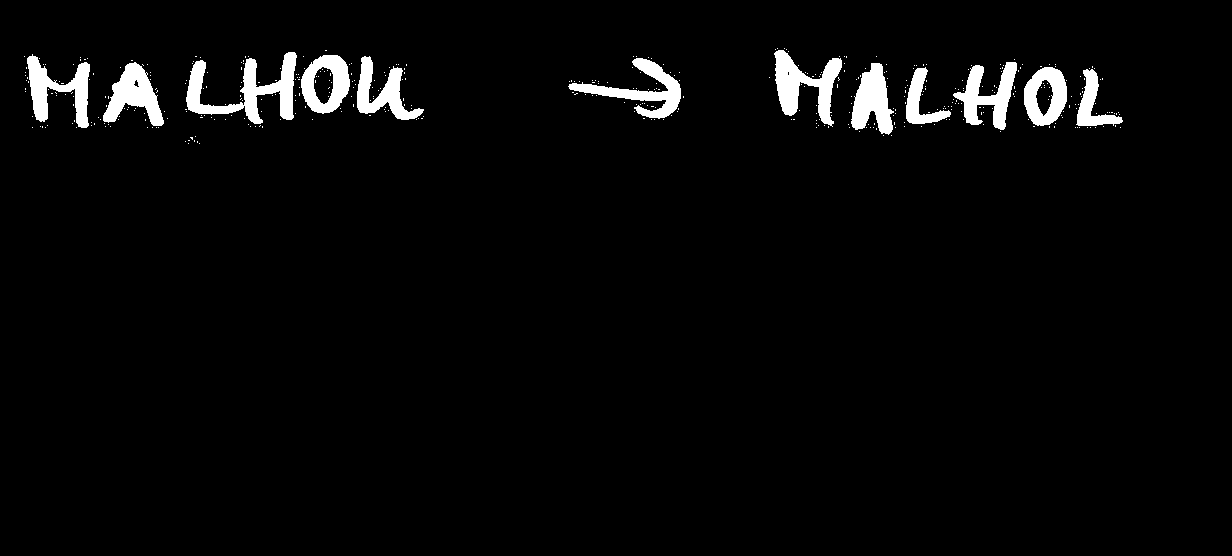 MALHOU → MALHOL